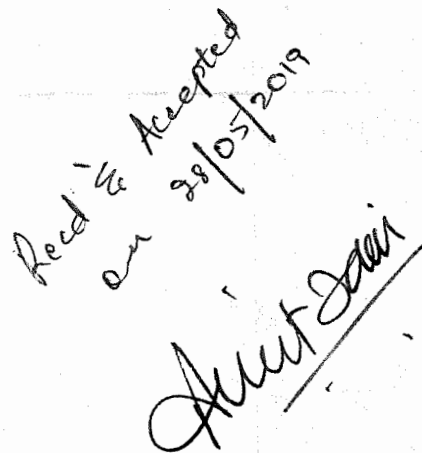 Recd & Accepted
on 28/05/2019
Amit Jain